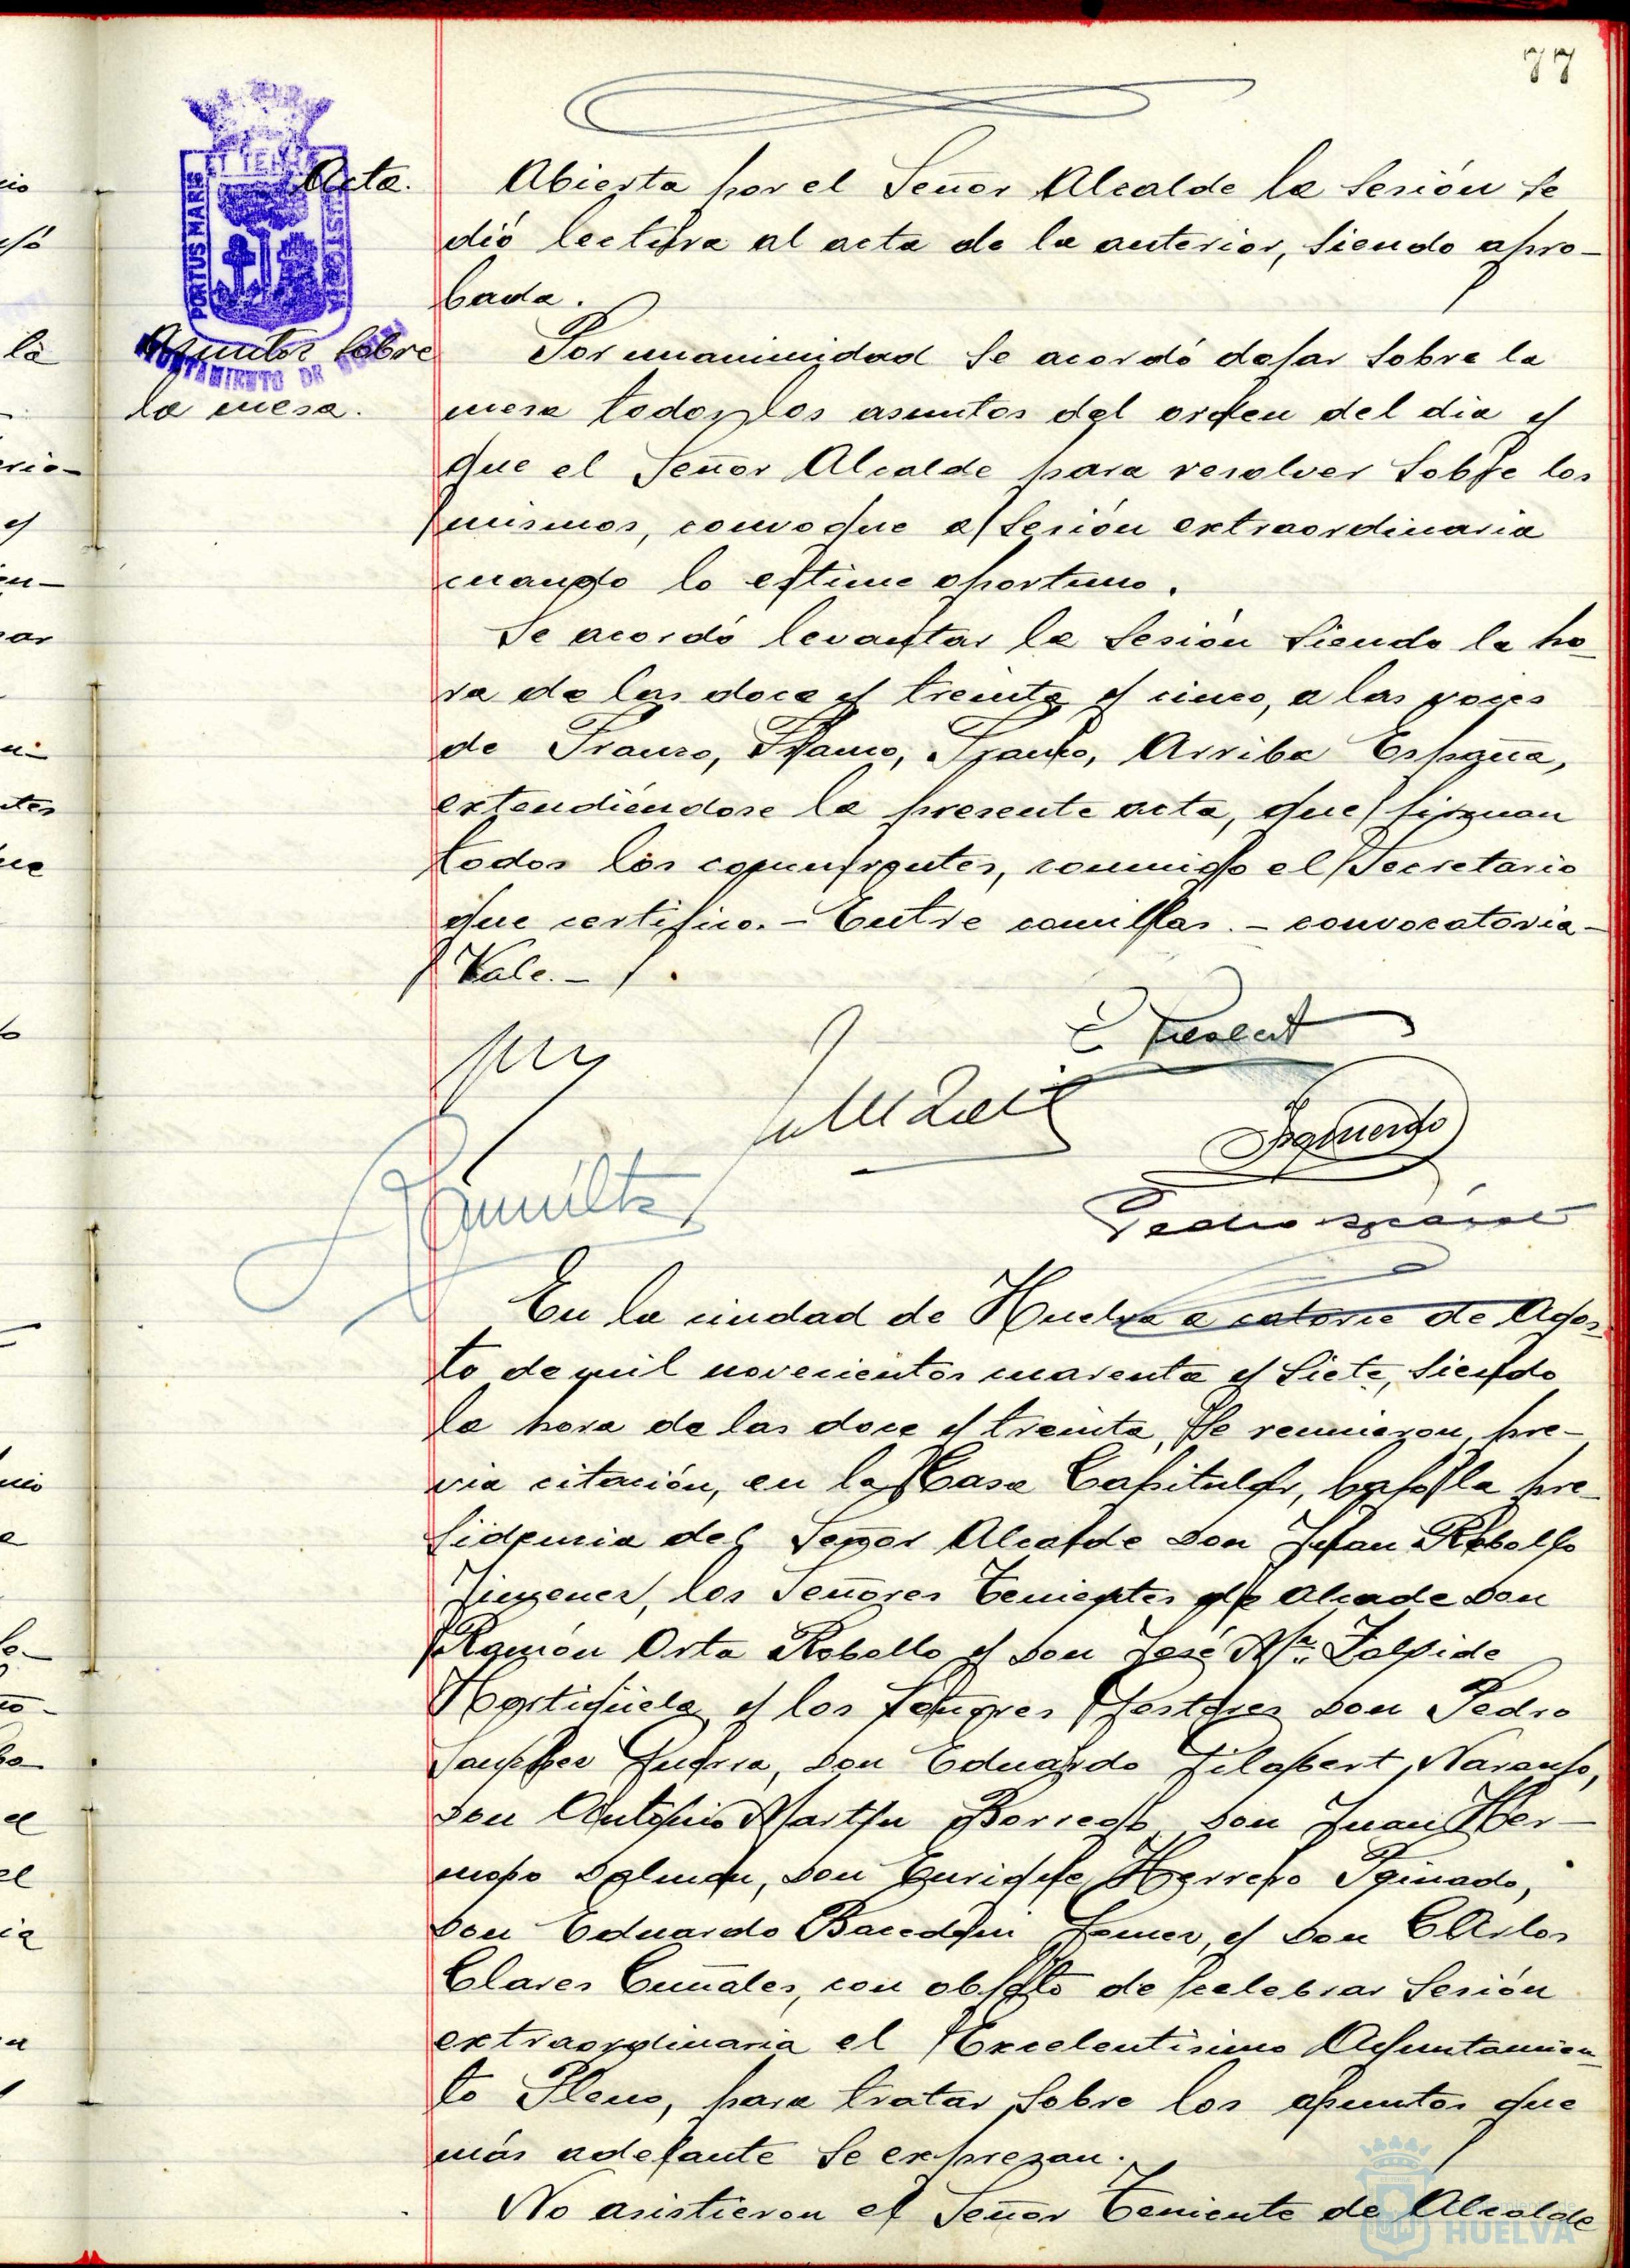 77
Acta.
Abierta por el Señor Alcalde la sesión se
dió lectura al acta de la anterior, siendo apro-
bada.
Asuntos sobre
la mesa.
Por unanimidad se acordó dejar sobre la
mesa todos los asuntos del orden del dia y
que el Señor Alcalde para resolver sobre los
mismos, convoque a sesión extraordinaria
cuando lo estime oportuno.
Se acordó levantar la sesión siendo la ho-
ra de las doce y treinta y cinco, a las voces
de Franco, Franco, Franco, Arriba España,
extendiéndose la presente acta, que firman
todos los concurrentes, conmigo el Secretario
que certifico.- Entre comillas.- convocatoria-
Vale.-
Izquierdo
Pedro
En la ciudad de Huelva a catorce de Agos-
to de mil novecientos cuarenta y siete, siendo
la hora de las doce y treinta, se reunieron, pre-
via citación, en la Casa Capitular, bajo la pre-
sidencia del Señor Alcalde Don Juan Rebollo
Jimenez, los Señores Tenientes de Alcade Don
Ramón Orta Rebollo y Don José Mª. Zalvide
Hortigüela y los señores Gestores Don Pedro
Sanchez Guerra, Don Eduardo Gilabert Naranjo,
Don Antonio Martin Borrego, Don Juan Her-
moso Dolman, Don Enrique Herrero Peinado,
Don Eduardo Bacedoni Gomez, y Don CArlos
Clares Cumales, con objeto de celebrar sesión
extraordinaria el Excelentisimo Ayuntamien-
to Pleno, para tratar sobre los asuntos que
más adelante se expresan.
No asistieron el Señor Teniente de Alcalde
PORTUS MARIS
AYUNTAMIENTO DE HUELVA
HUELVA